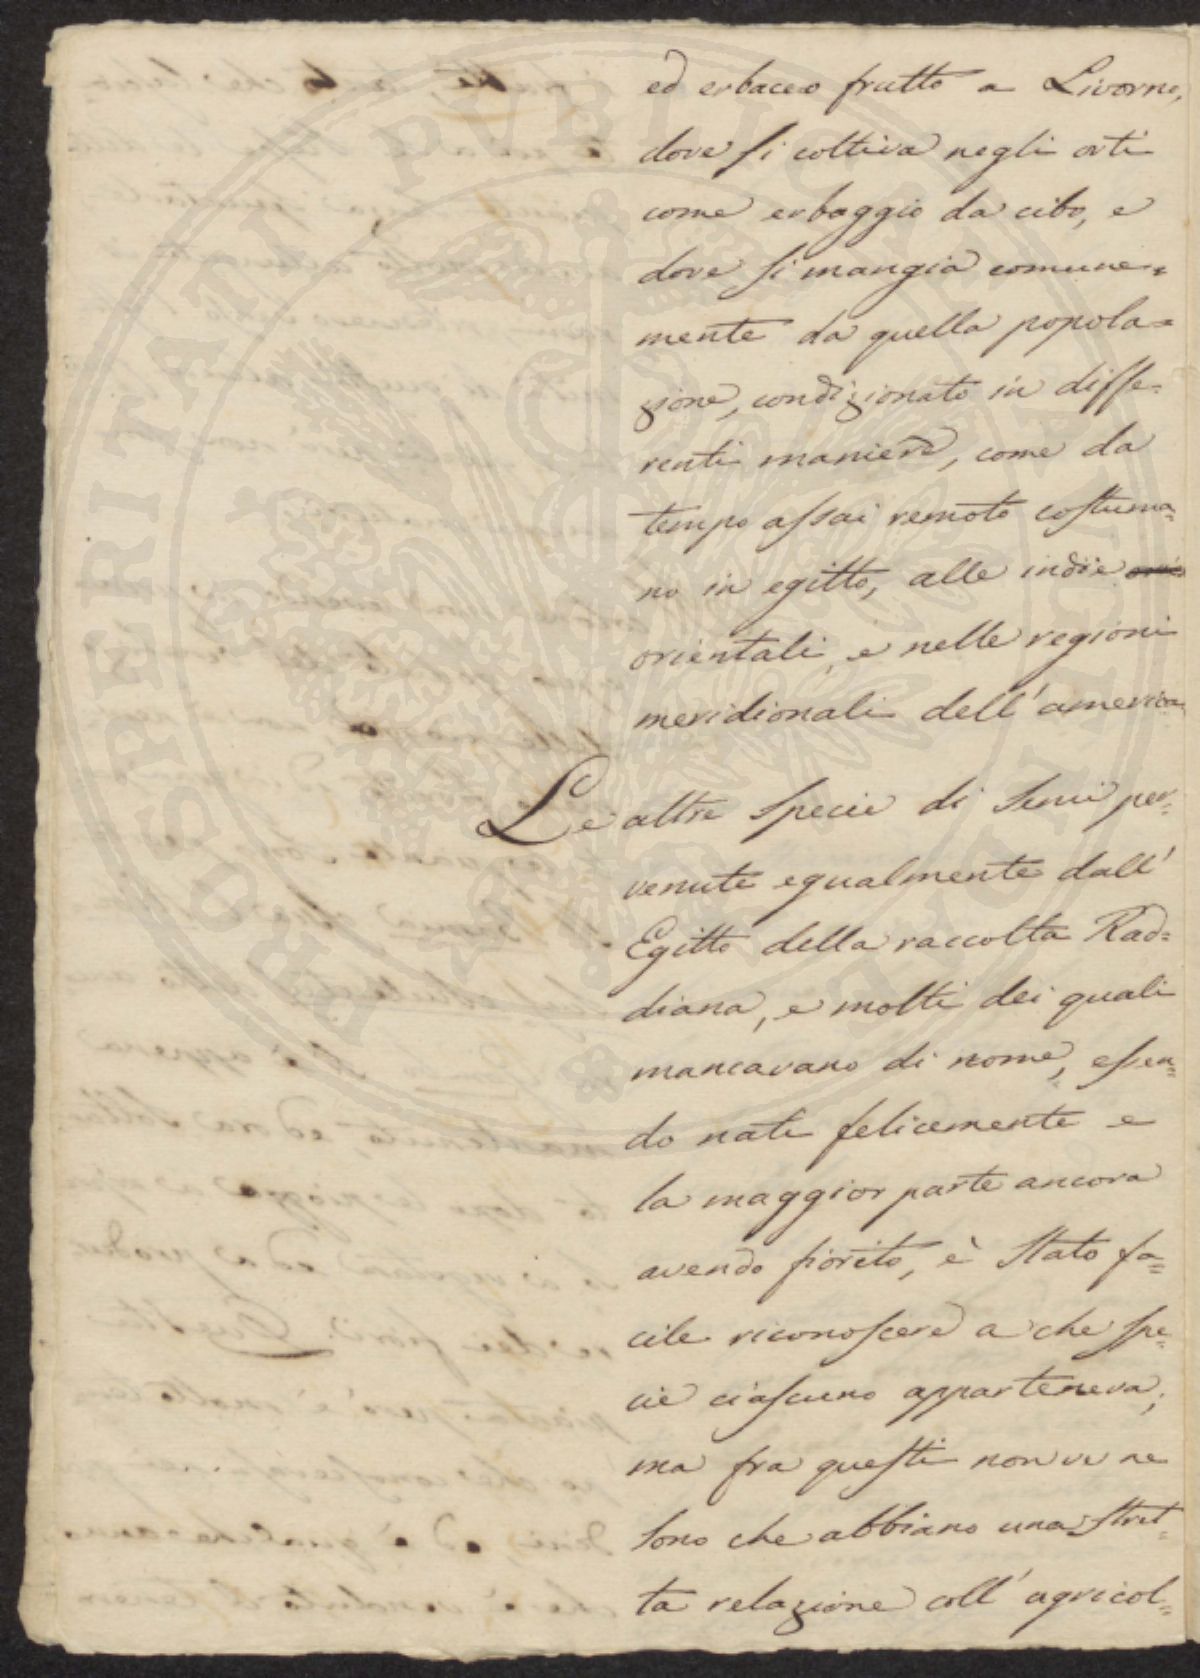 ed erbaceo frutto a Livorno,
dove si coltiva negli orti
come erbaggio da cibo, e
dove si mangia comune=
mente da quella popola=
zione, condizionato in diffe=
renti maniere, come da
tempo assai remoto costuma=
no in egitto, alle indie
orientali, e nelle regioni
meridionali dell'america
Le altre specie di Semi per=
venute egualmente dall'
Egitto della raccolta Rad=
diana, e molti dei quali
mancavano di nome, essen=
do nati felicemente e
la maggior parte ancora
avendo fiorito, è stato fa=
cile riconoscere a che spe=
cie ciascuno apparteneva;
ma fra questi non ve ne
sono che abbiano una stret=
ta relazione coll'agricol=
PROSPERITATI PUBLICAE AUGENDAE